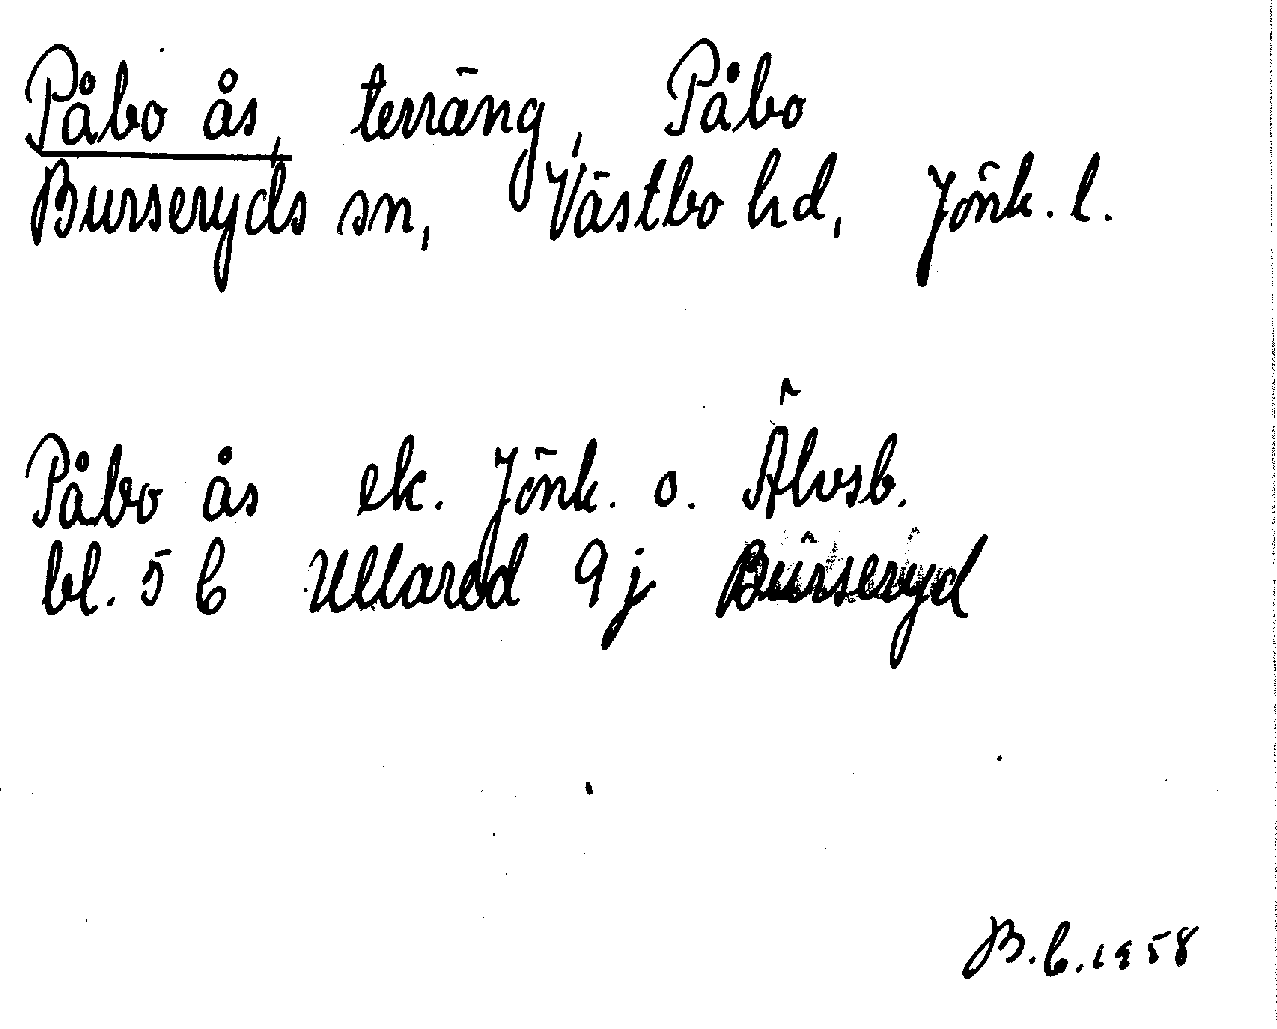 Påbo ås, terräng, Påbo
Burseryds sn, Västbo hd, Jönk. l.
Påbo ås ek. Jönk. o. Älvsb.
bl. 5 C Ullared 9 j Burseryd
B.C. 1958